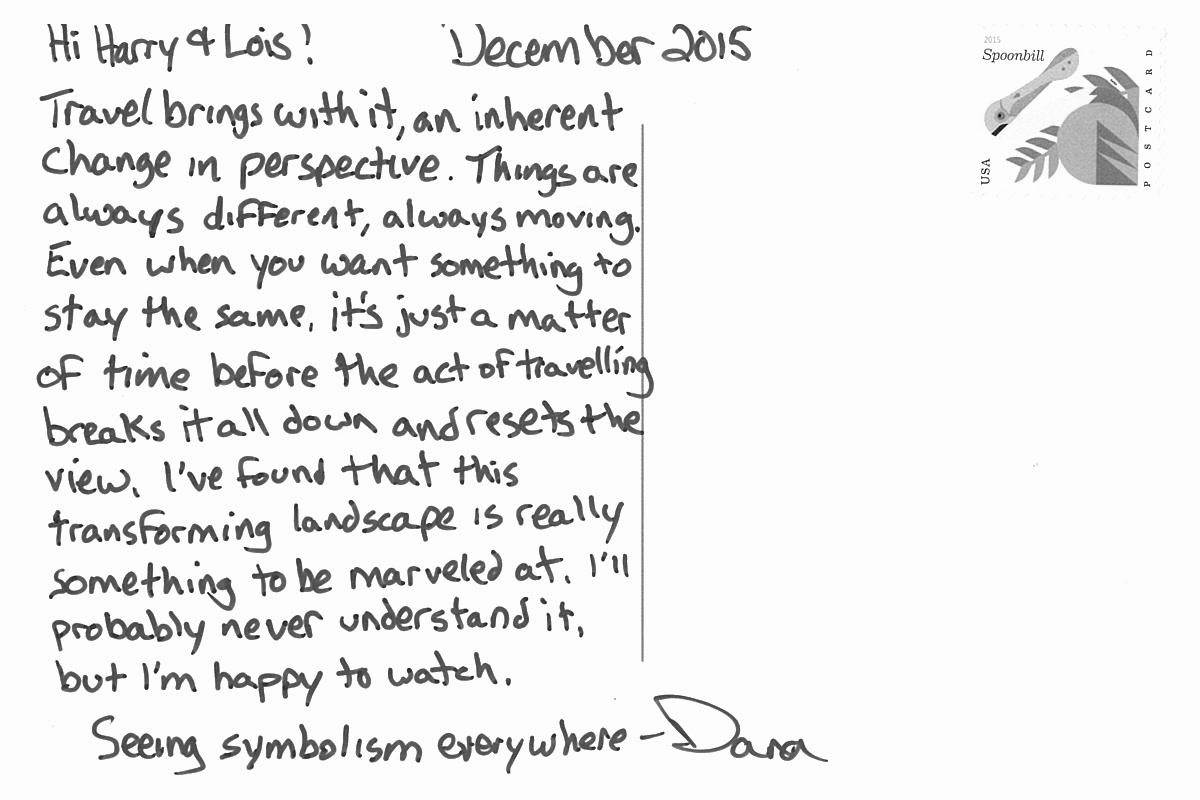 Hi Harry & Lois! December 2015
Travel brings with it, an inherent
change in perspective. Things are
always different, always moving.
Even when you want something to
stay the same, it's just a matter
of time before the act of travelling
breaks it all down and resets the
view. I've found that this
transforming landscape is really
something to be marveled at. I'll
probably never understand it,
but I'm happy to watch.
Seeing symbolism everywhere - Dana
2015
Spoonbill
USA
POSTCARD